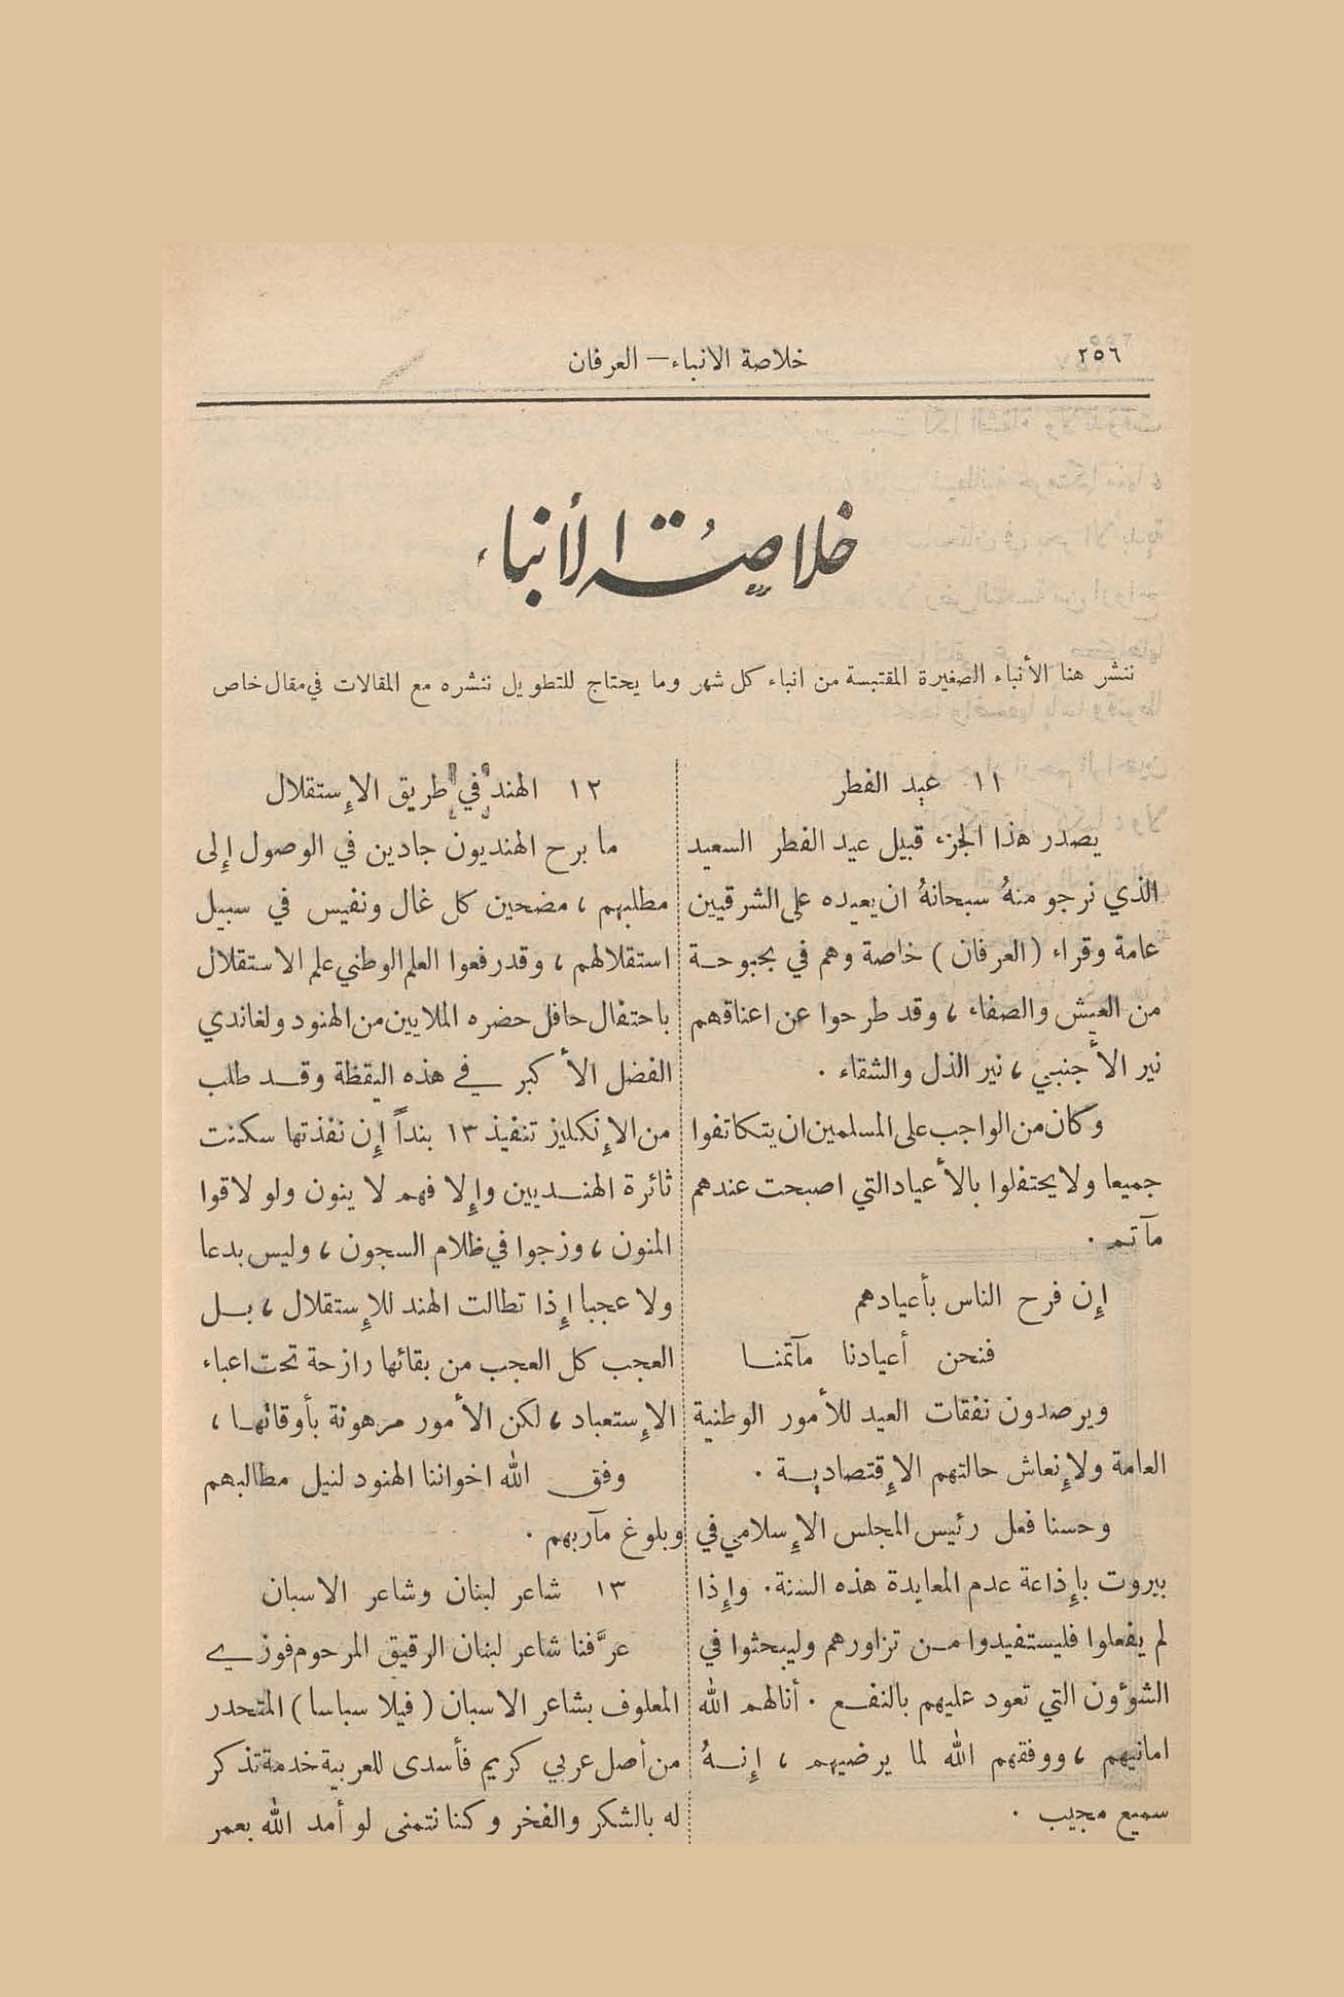 ٢٥٦
خلاصة الانباء — العرفان
خلاصة الأنباء
ننشر هنا الأنباء الصغيرة المقتبسة من انباء كل شهر وما يحتاج للتطويل ننشره مع المقالات في مقال خاص
١١ عيد الفطر
يصدر هذا الجزء قبيل عيد الفطر السعيد
الذي نرجو منهُ سبحانهُ ان يعيده على الشرقيين
عامة وقراء (العرفان) خاصة وهم في بحبوحة
من العيش والصفاء ، وقد طرحوا عن اعناقهم
نير الأجنبي ، نير الذل والشقاء .
وكان من الواجب على المسلمين ان يتكاتفوا
جميعا ولا يحتفلوا بالأعياد التي اصبحت عندهم
مآتم .
إن فرح الناس بأعيادهم
فنحن أعيادنا مآتمنا
ويرصدون نفقات العيد للأمور الوطنية
العامة ولإنعاش حالتهم الإقتصادية .
وحسنا فعل رئيس المجلس الإسلامي في
بيروت بإذاعة عدم المعايدة هذه السنة. وإذا
لم يفعلوا فليستفيدوا من تزاورهم وليبحثوا في
الشؤون التي تعود عليهم بالنفع . أنالهم الله
امانيهم ، ووفقهم الله لما يرضيهم ، إنهُ
سميع مجيب .
١٢ الهند في طريق الإستقلال
ما برح الهنديون جادين في الوصول إلى
مطلبهم ، مضحين كل غال ونفيس في سبيل
استقلالهم ، وقد رفعوا العلم الوطني علم الاستقلال
باحتفال حافل حضره الملايين من الهنود ولغاندي
الفضل الأكبر في هذه اليقظة وقد طلب
من الإنكليز تنفيذ ١٣ بنداً إن نفذتها سكنت
ثائرة الهنديين وإلا فهم لا ينون ولو لاقوا
المنون ، وزجوا في ظلام السجون ، وليس بدعا
ولا عجبا إذا تطالت الهند للإستقلال ، بل
العجب كل العجب من بقائها رازحة تحت اعباء
الإستعباد ، لكن الأمور مرهونة بأوقاتها ،
وفق الله اخواننا الهنود لنيل مطالبهم
وبلوغ مآربهم .
١٣ شاعر لبنان وشاعر الاسبان
عرَّفنا شاعر لبنان الرقيق المرحوم فوزي
المعلوف بشاعر الاسبان (فيلا سباسا) المتحدر
من أصل عربي كريم فأسدى للعربية خدمة تذكر
له بالشكر والفخر وكنا نتمنى لو أمد الله بعمر